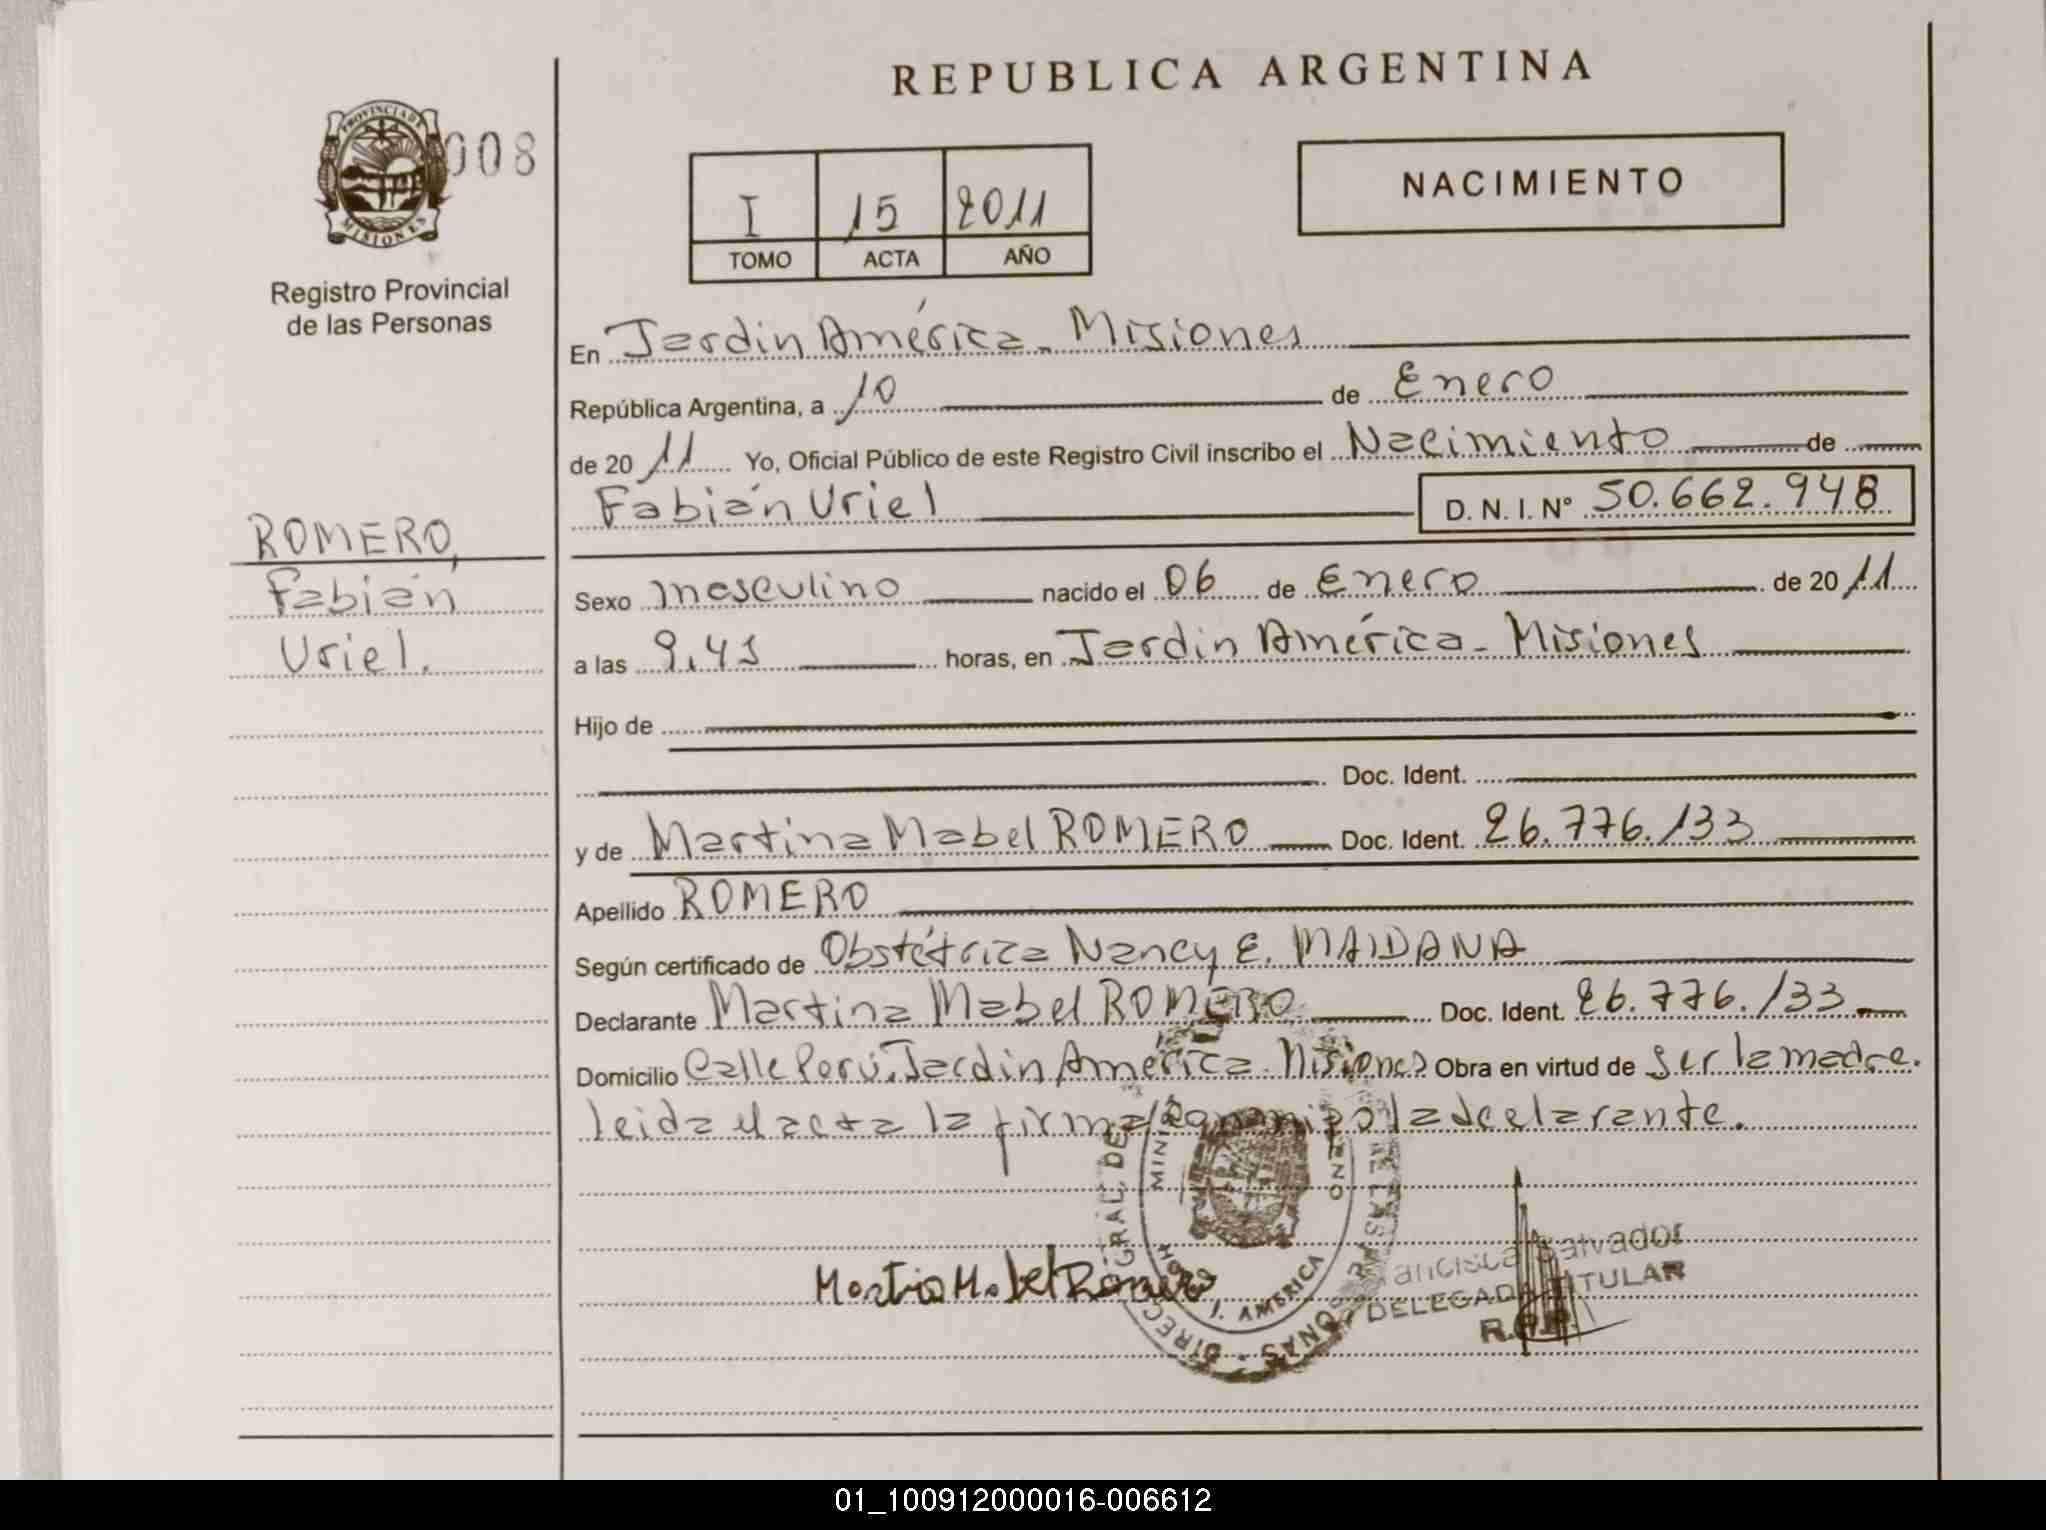 REPUBLICA ARGENTINA
PROVINCIA DE
MISIONES
008
Registro Provincial
de las Personas
I 15 2011
TOMO ACTA AÑO
NACIMIENTO
En Jardin América - Misiones
República Argentina, a 10 de Enero
de 2011 Yo, Oficial Público de este Registro Civil inscribo el Nacimiento de
Fabián Uriel D. N. I. N° 50.662.948
ROMERO,
Fabián
Uriel.
Sexo masculino nacido el 06 de Enero de 2011
a las 9,45 horas, en Jardin América - Misiones
Hijo de
Doc. Ident.
y de Martina Mabel ROMERO Doc. Ident. 26.776.133
Apellido ROMERO
Según certificado de Obstétrica Nancy E. MAIDANA
Declarante Martina Mabel ROMERO Doc. Ident. 26.776.133
Domicilio Calle Perú. Jardin América - Misiones Obra en virtud de ser la madre.
leida el acta la firma conmigo la declarante.
Martina Mabel Romero
DIREC GRAL. DE LAS PERSONAS
J. AMERICA
Salvador
DELEGADA TITULAR
R.P.P.
01_100912000016-006612